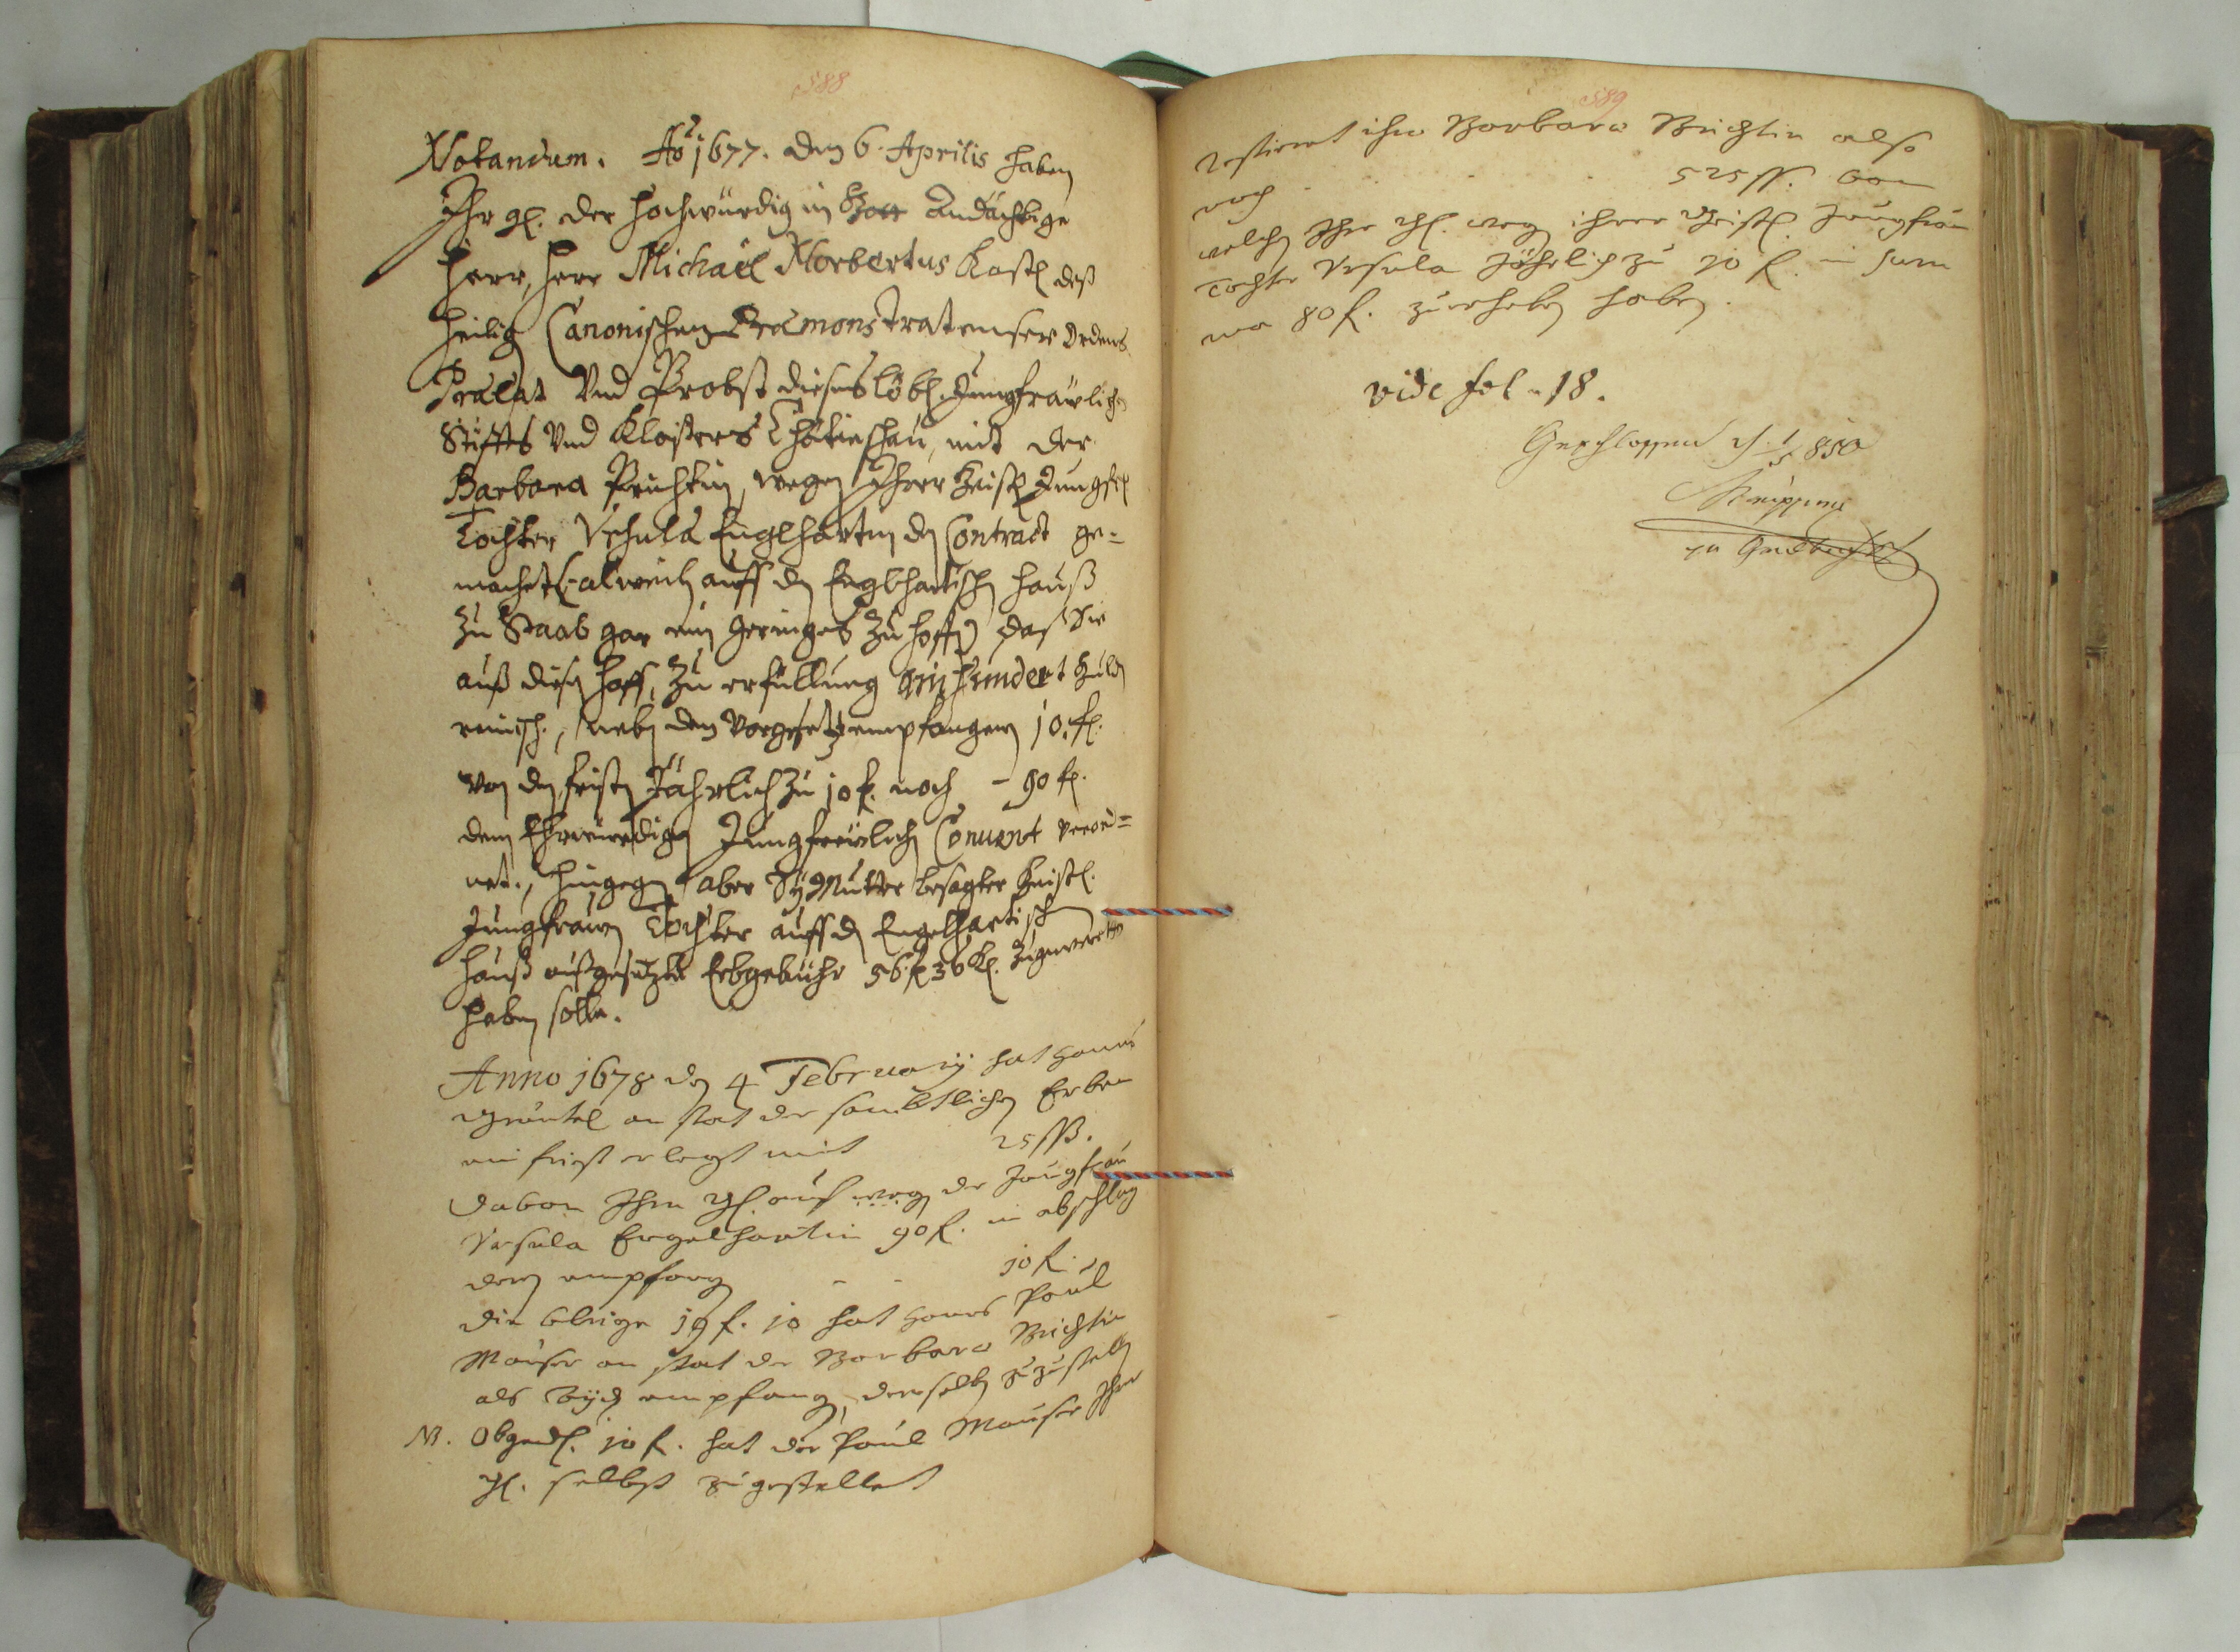 588
Notandum. Aō 1677. den 6. Aprilis haben
Ihr gl. der Hochwürdig in Gott Andächtige
Herr, Herr Michaël Norbertus Kastl deß
Heilig Canonischen Præmonstratenser Ordens
Prælat Vnd Probst dieses löbl. Jungfräwlichen
Stiffts Vnd Klosters Chotieschau, mit der
Barbara Prichtin, wegen Ihrer Geistl Jungfr
Tochter Vrsula Englhartin den Contract ge=
machet (: alweiln auff den Englhartischen Hauß
zu Staab gar ein geringes zu hoffen) daß Sie
auß diesen Hoff, zu erfüllung Einhundert Gulden
reinisch., neben den Vorgesetzt empfangenen 10. fl.
Von den fristen Jährlich zu 10 fl. noch - 90 fl.
dem Ehrwürdigen Jungfreulichen Conuent verord=
net., hingegen aber Sÿ Mutter besagter Geistl.
Jungfrawen Tochter auff den Engelhartischen
Hauß außgesetzte Erbgebühr 56 fl 36 Kl. zugewarten
haben solle.
Anno 1678 den 4 Februarij hat Hanns
an stat der sambtlichen Erben
ein frist erlegt mit 25 ßß.
Davon Ihre gl. auf weg der Jungfrau
Vrsula Engelhartin 90 fl. in abschlag
deren empfangen - - 10 fl.
die vbrige 19 fl. 10 hat Hanns Paul
Mauser an stat der Barbara Brichtin
als empfangen, derselben zuzustellen
NB. Obgedl. 10 fl. hat der Paul Mauser Ihr
gl. selbst zugestellet
589
restiert ihr Barbara Brichtin also
noch . . . . 525 ßß. Von
welchen Ihr gl. weg ihrer Geistl. Jungfrau
Tochter Vrsula Jährlich zu 10 fl. in Sum
ma 80 fl. zu erheben haben.
vide fol. 18.
Geschlossen 850